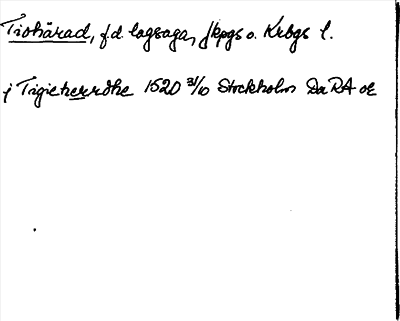 Tiohärad, f.d. lagsaga, Jkpgs o. Krbgs l.
j Tigieherrdhe 1520 3/10 Stockholm DaRA oE